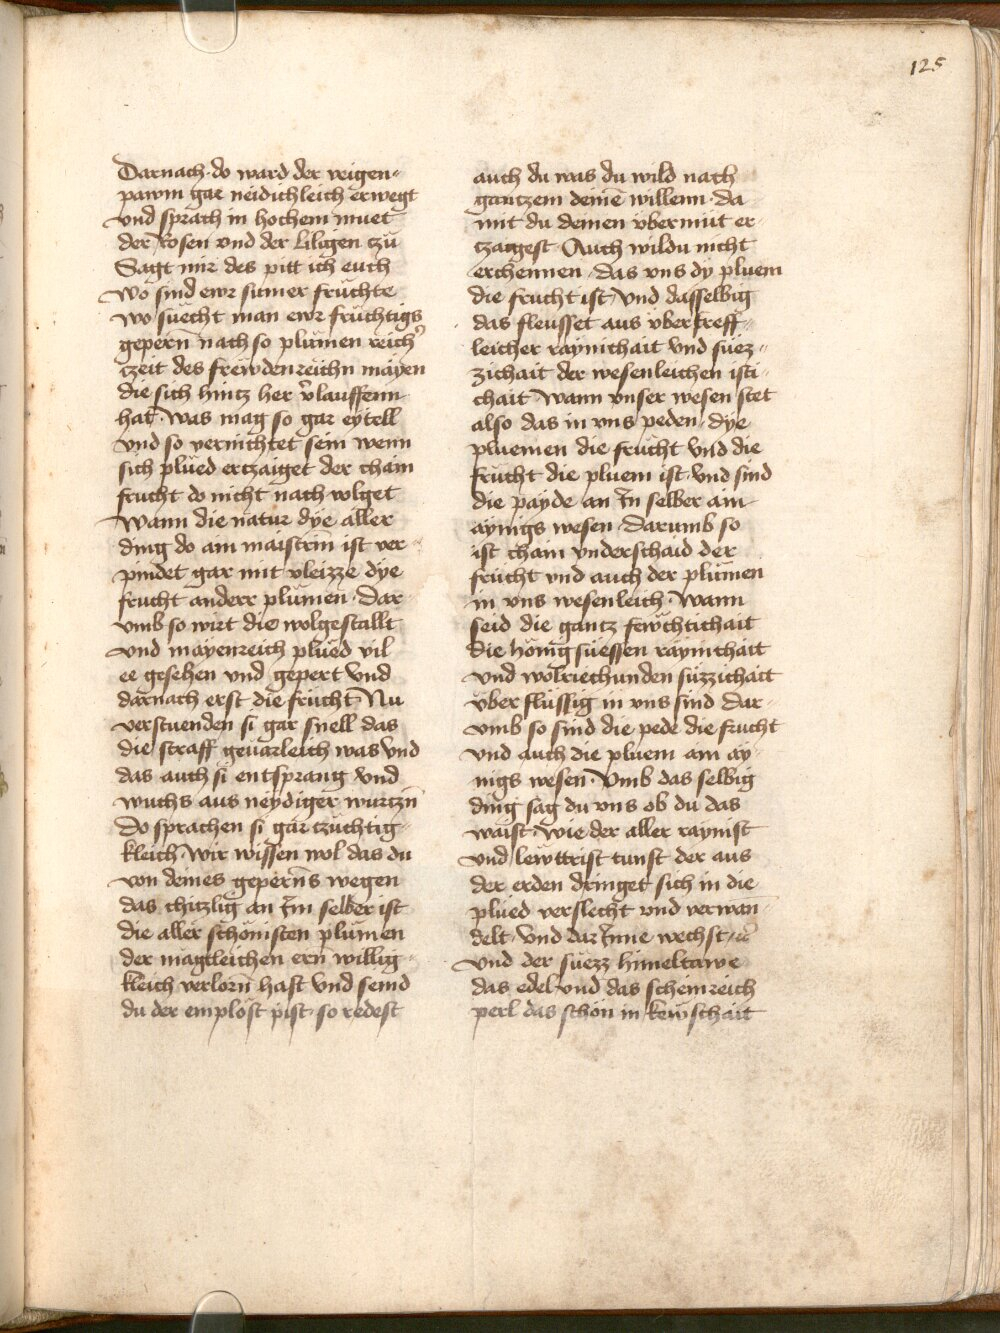 125
Darnach do ward der veigen-
pawm gar neidichleich erwegt
vnd sprach in hochem muet
der Rosen vnd der Liligen czu
Sagt mir des pitt ich euch
wo sind ewr sumer fruchte
wo suecht man ewr fruchtigs
gepern nach so plumen reicher
czeit des frewdenreichn mayen
die sich hincz her verlauffenn
hat Was mag so gar eytell
vnd so vernichtet sein wenn
sich plued erczaiget der chain
frucht do nicht nach volget
Wann die natur dye aller
ding do ain maistrin ist ver
pindet gar mit vleizze dye
frucht anderr plumen Dar
vmb so wirt die wolgestallt
vnd mayenreich plued vil
ee gesehen vnd gepert vnd
darnach erst die frucht Nu
verstuenden si gar snell das
die straff geuarleich was vnd
das auch si entsprang vnd
wuchs aus neydiger wurczn
Do sprachen si gar czuchtig
kleich Wir wissen wol das du
von deines geperns wegen
das chiczlig an im selber ist
die aller schonisten plumen
der magtleichen ern willig
kleich verlorn hast vnd seind
du der emplost pist so redest
auch du was du wild nach
ganczem deinē willenn da
mit du deinen vbermut er
czaigest Auch wildu nicht
erchennen das vns dy pluem
die frucht ist vnd dasselbig
das fleusset aus vbertreff
leicher raynichait vnd suez
zichait der wesenleichen isti
chait Wann vnser wesen stet
also das in vns peden dye
pluemen die frucht vnd die
frucht die pluem ist vnd sind
die payde an In selber ain
aynigs wesen Darumb so
ist chain vnderschaid der
frucht vnd auch der plumen
in vns wesenleich Wann
seid die gancz fewchtichait
die honigsuessen raynichait
vnd wolriechunden suzzichait
vberflussig in vns sind dar
vmb so sind die pede die frucht
vnd auch die pluem ain ay
nigs wesen Vmb das selbig
ding sag du vns ob du das
waist wie der aller raynist
vnd lewttrist tunst der aus
der erden dringet sich in die
plued verslecht vnd verwan
delt vnd dar Inne wechst
vnd der suezz himeltawe
das edel vnd das scheinreich
perl das schon in kewschait